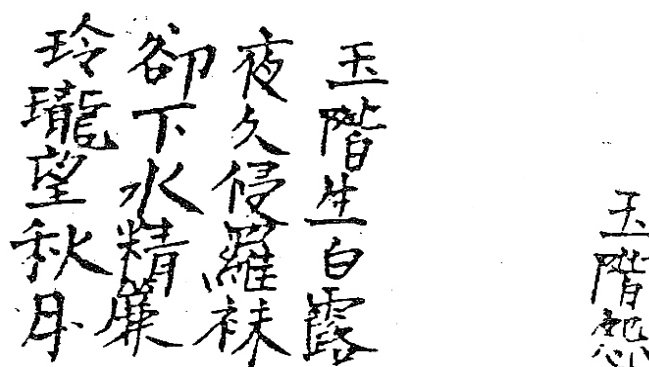 玉階怨
玉階生白露
夜久侵羅袜
卻下水精簾
玲瓏望秋月